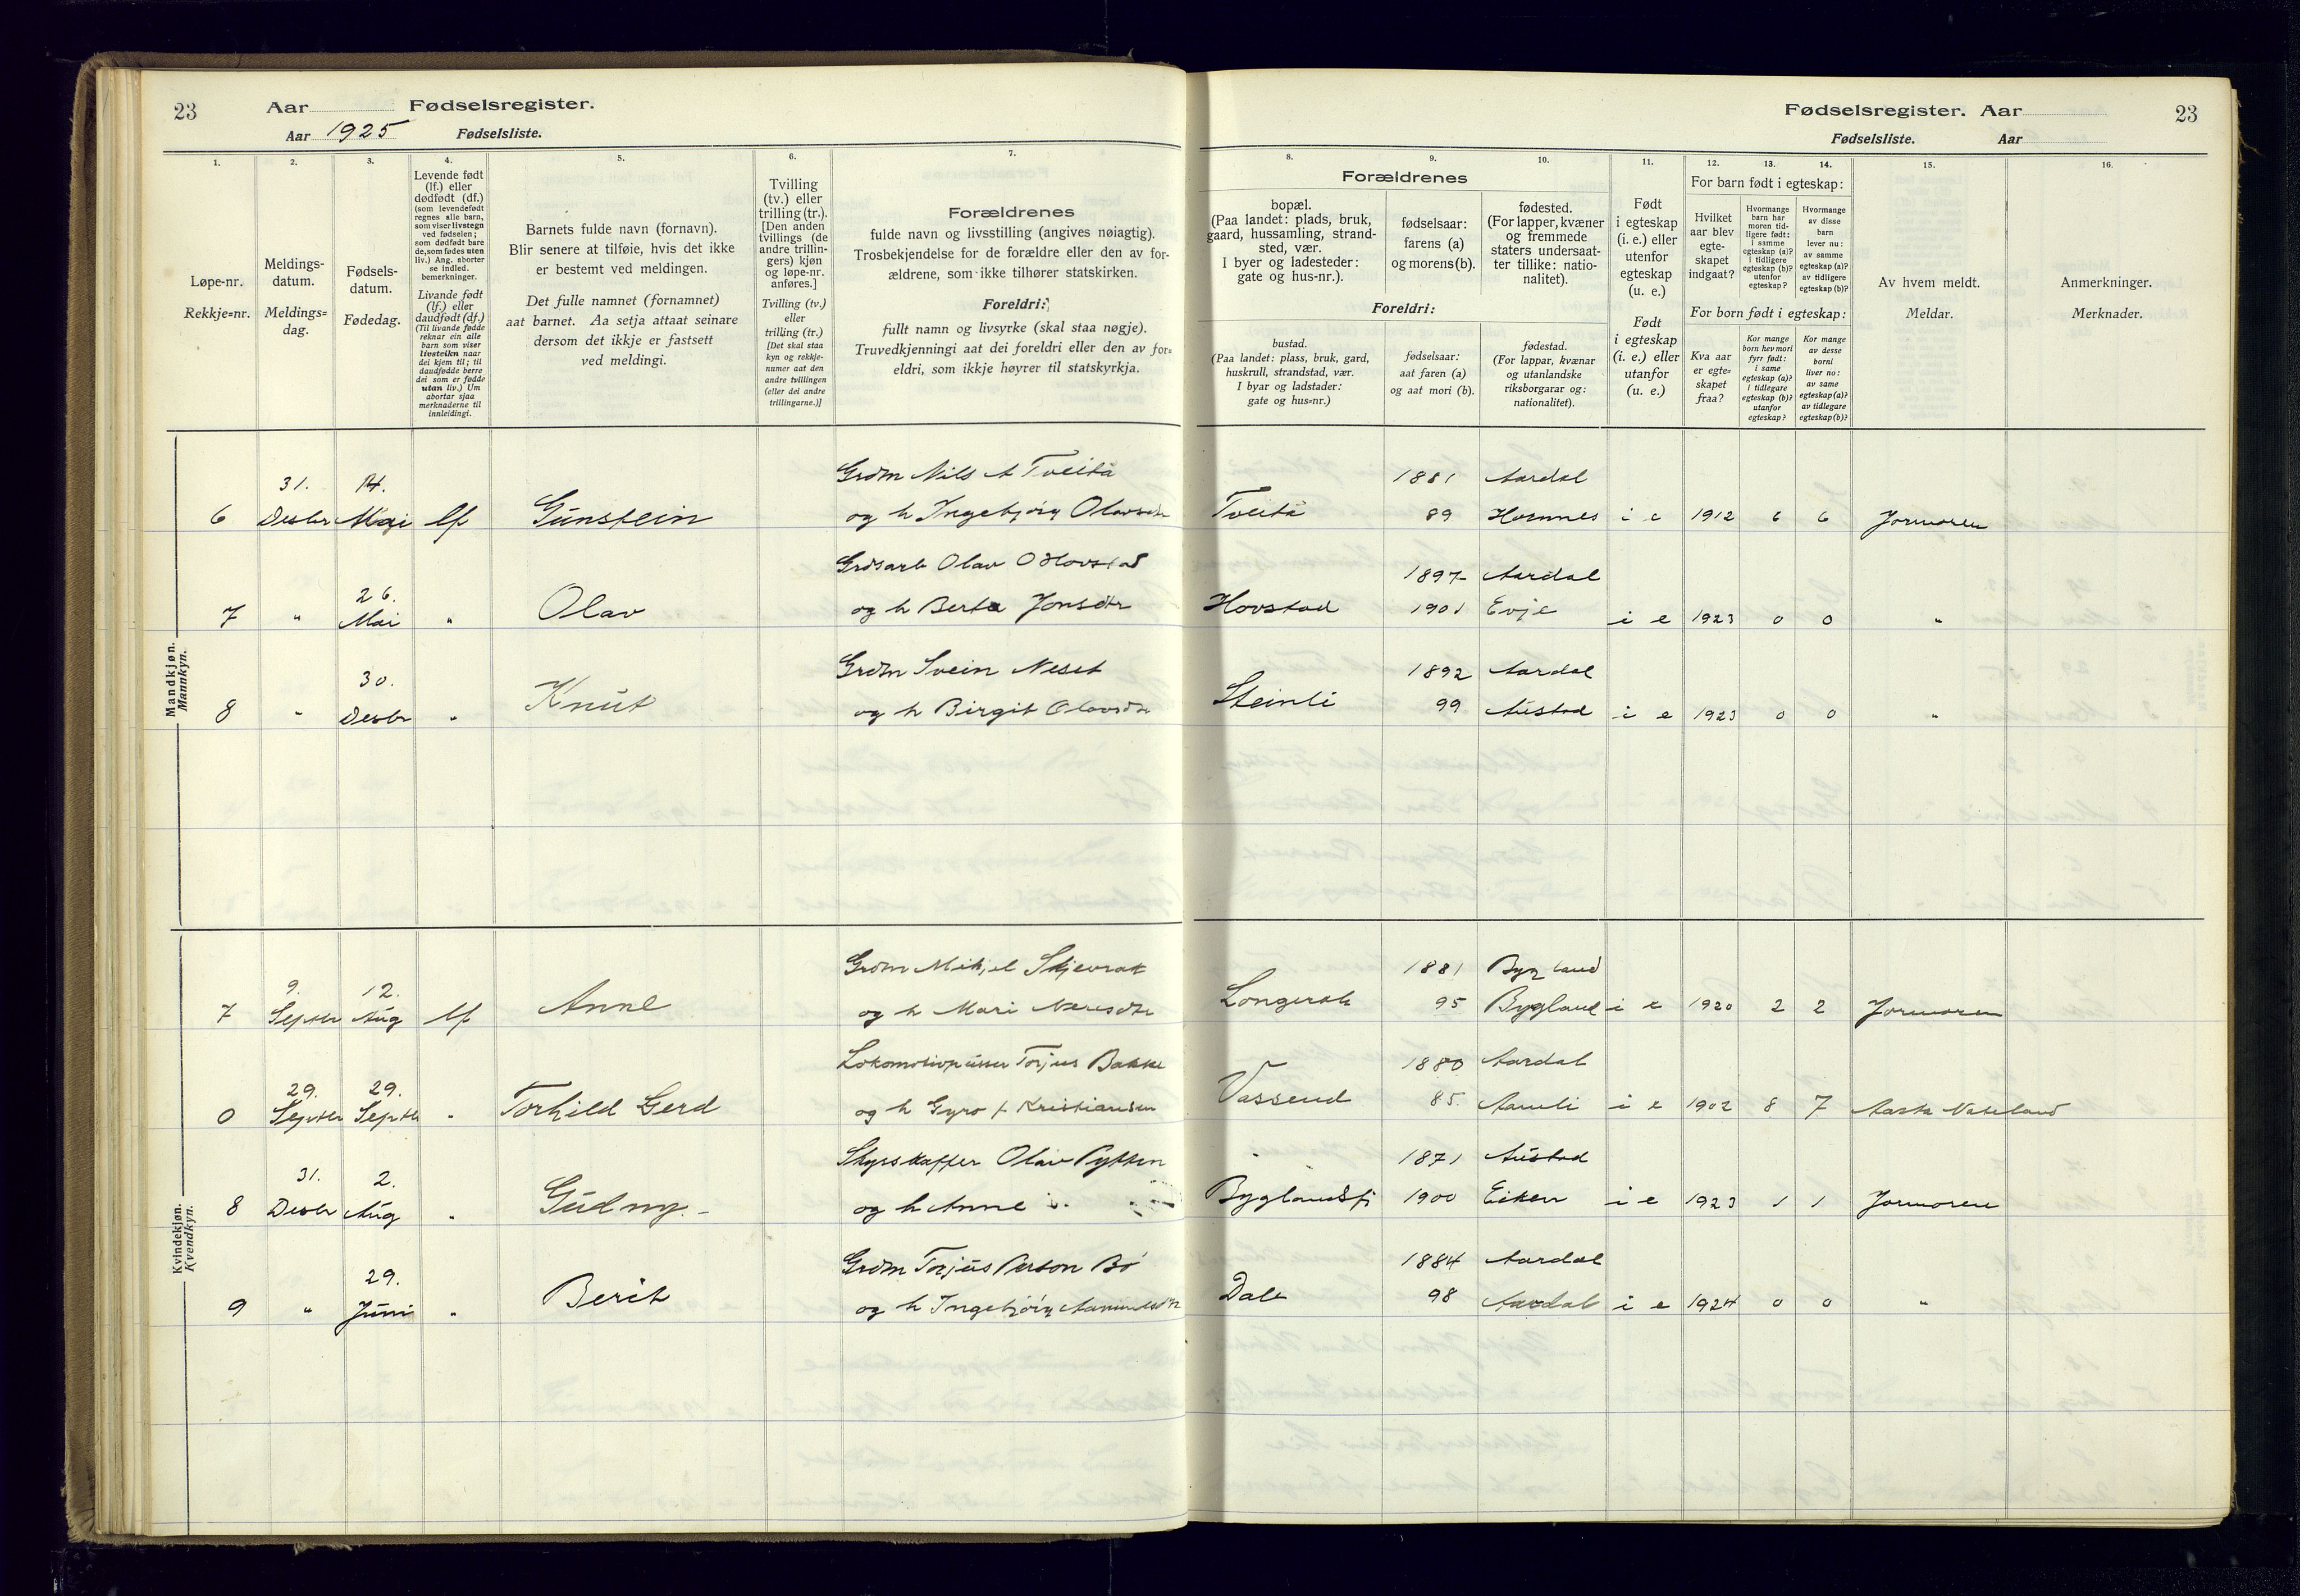 23 Aar Fødselsregister.
Aar 1925 Fødselsliste.
1. 2. 3. 4. 5. 6. 7.
Løpe-nr.
Rekkje=nr.
Meldings-
datum.
Meldings=
dag.
Fødsels-
datum.
Fødedag.
Levende født
(lf.) eller
dødfødt (df.)
(som levendefødt
regnes alle barn,
som viser livstegn
ved fødselen;
som dødfødt bare
de, som fødes uten
liv.) Ang. aborter
se indled.
bemerkninger.
Livande født
(lf.) eller
daudfødt (df.)
(Til livande fødde
reknar ein alle
barn som viser
livsteikn naar
dei kjem til; til
daudfødde berre
dei som er fødde
utan liv.) Um
abortar sjaa
merknaderne til
innleidingi.
Barnets fulde navn (fornavn).
Blir senere at tilføie, hvis det ikke
er bestemt ved meldingen.
Det fulle namnet (fornamnet)
aat barnet. Aa setja attaat seinare
dersom det ikkje er fastsett
ved meldingi.
Tvilling
(tv.) eller
trilling (tr.).
[Den anden
tvillings (de
andre trillin-
gers) kjøn
og løpe-nr.
anføres.]
Tvilling (tv.)
eller
trilling (tr.)
[Det skal staa
kyn og rekkje-
numer aat den
andre tvillingen
(eller dei andre
trillingarne.)]
Forældrenes
fulde navn og livsstilling (angives nøiagtig).
Trosbekjendelse for de forældre eller den av for-
ældrene, som ikke tilhører statskirken.
Foreldri:
fullt namn og livsyrke (skal staa nøgje).
Truvedkjenningi aat dei foreldri eller den av for=
eldri, som ikkje høyrer til statskyrkja.
Mandkjøn.
Mannkyn.
31. 14. Grdm Nils A Tveitå
6 Desbr Mai lf Gunstein og h Ingebjörg Olavsdtr
Grdsarb Olav O Hovstad
26.
7 " Mai " Olav og h Berta Jonsdtr
Grdm Svein Neset
30.
8 " Desbr " Knut og h Birgit Olavsdtr
Kvindekjøn.
Kvendkyn.
Grdm Mikjel Skjevrak
9. 12.
7 Septbr Aug lf Anne og h Mari
Torjus Bakke
29. 29.
0 Septbr Septbr " Torhild Gerd og h Gyro f Kristiansen
Olav Pytten
31. 2.
8 Desbr Aug " Gudny og h Anne
Grdm Torjus Person Bö
29.
9 " Juni " Berit og h Ingebjörg
Fødselsregister. Aar 23
Fødselsliste. Aar
8. 9. 10. 11. 12. 13. 14. 15. 16.
Forældrenes
bopæl.
(Paa landet: plads, bruk,
gaard, hussamling, strand-
sted, vær.
I byer og ladesteder:
gate og hus-nr.).
fødselsaar:
farens (a)
og morens (b).
fødested.
(For lapper, kvæner
og fremmede
staters undersaat-
ter tillike: natio-
nalitet).
Foreldri:
bustad.
(Paa landet: plass, bruk, gard,
huskrull, strandstad, vær.
I byar og ladstader:
gate og hus=nr.)
fødselsaar:
aat faren (a)
og aat mori (b).
fødestad.
(For lappar, kvænar
og utanlandske
riksborgarar og:
nationalitet).
Født
i egteskap
(i. e.) eller
utenfor
egteskap
(u. e.)
Født
i egteskap
(i. e.) eller
utanfor
(u. e.)
For barn født i egteskap:
Hvilket
aar blev
egte-
skapet
indgaat?
Hvormange
barn har
moren tid-
ligere født:
i samme
egteskap (a)?
i tidligere
egteskap (b)?
utenfor
egteskap?
Hvormange
av disse
barn
lever nu:
av samme
egteskap (a)?
av tidligere
egteskap (b)?
For born født i egteskap:
Kva aar
er egte=
skapet
fraa?
Kor mange
born hev mori
fyrr født:
i same
egteskap (a)?
i tidlegare
egteskap (b)?
utanfor
egteskap?
Kor mange
av desse
borni
liver no:
av same
egteskap (a)?
av tidlegare
egteskap (b)?
Av hvem meldt.
Meldar.
Anmerkninger.
Merknader.
1881 Aardal
Tveitå 89 Hornnes i e 1912 6 6 Jormoren
1897 Aardal
Hovstad 1901 Evje i e 1923 0 0 "
1892 Aardal
Steinli 99 Austad i e 1923 0 0 "
1881 Bygland
Longerak 95 Bygland i e 1920 2 2 Jormoren
1880 Aardal
Vassend 85. Aamli i e 1902 8 7 Aasta Nateland
1871 Austad
Byglandsfj 1900 Eiken i e 1923 1 1 Jormoren
1884 Aardal
Dale 98 Aardal i e 1924 0 0 "